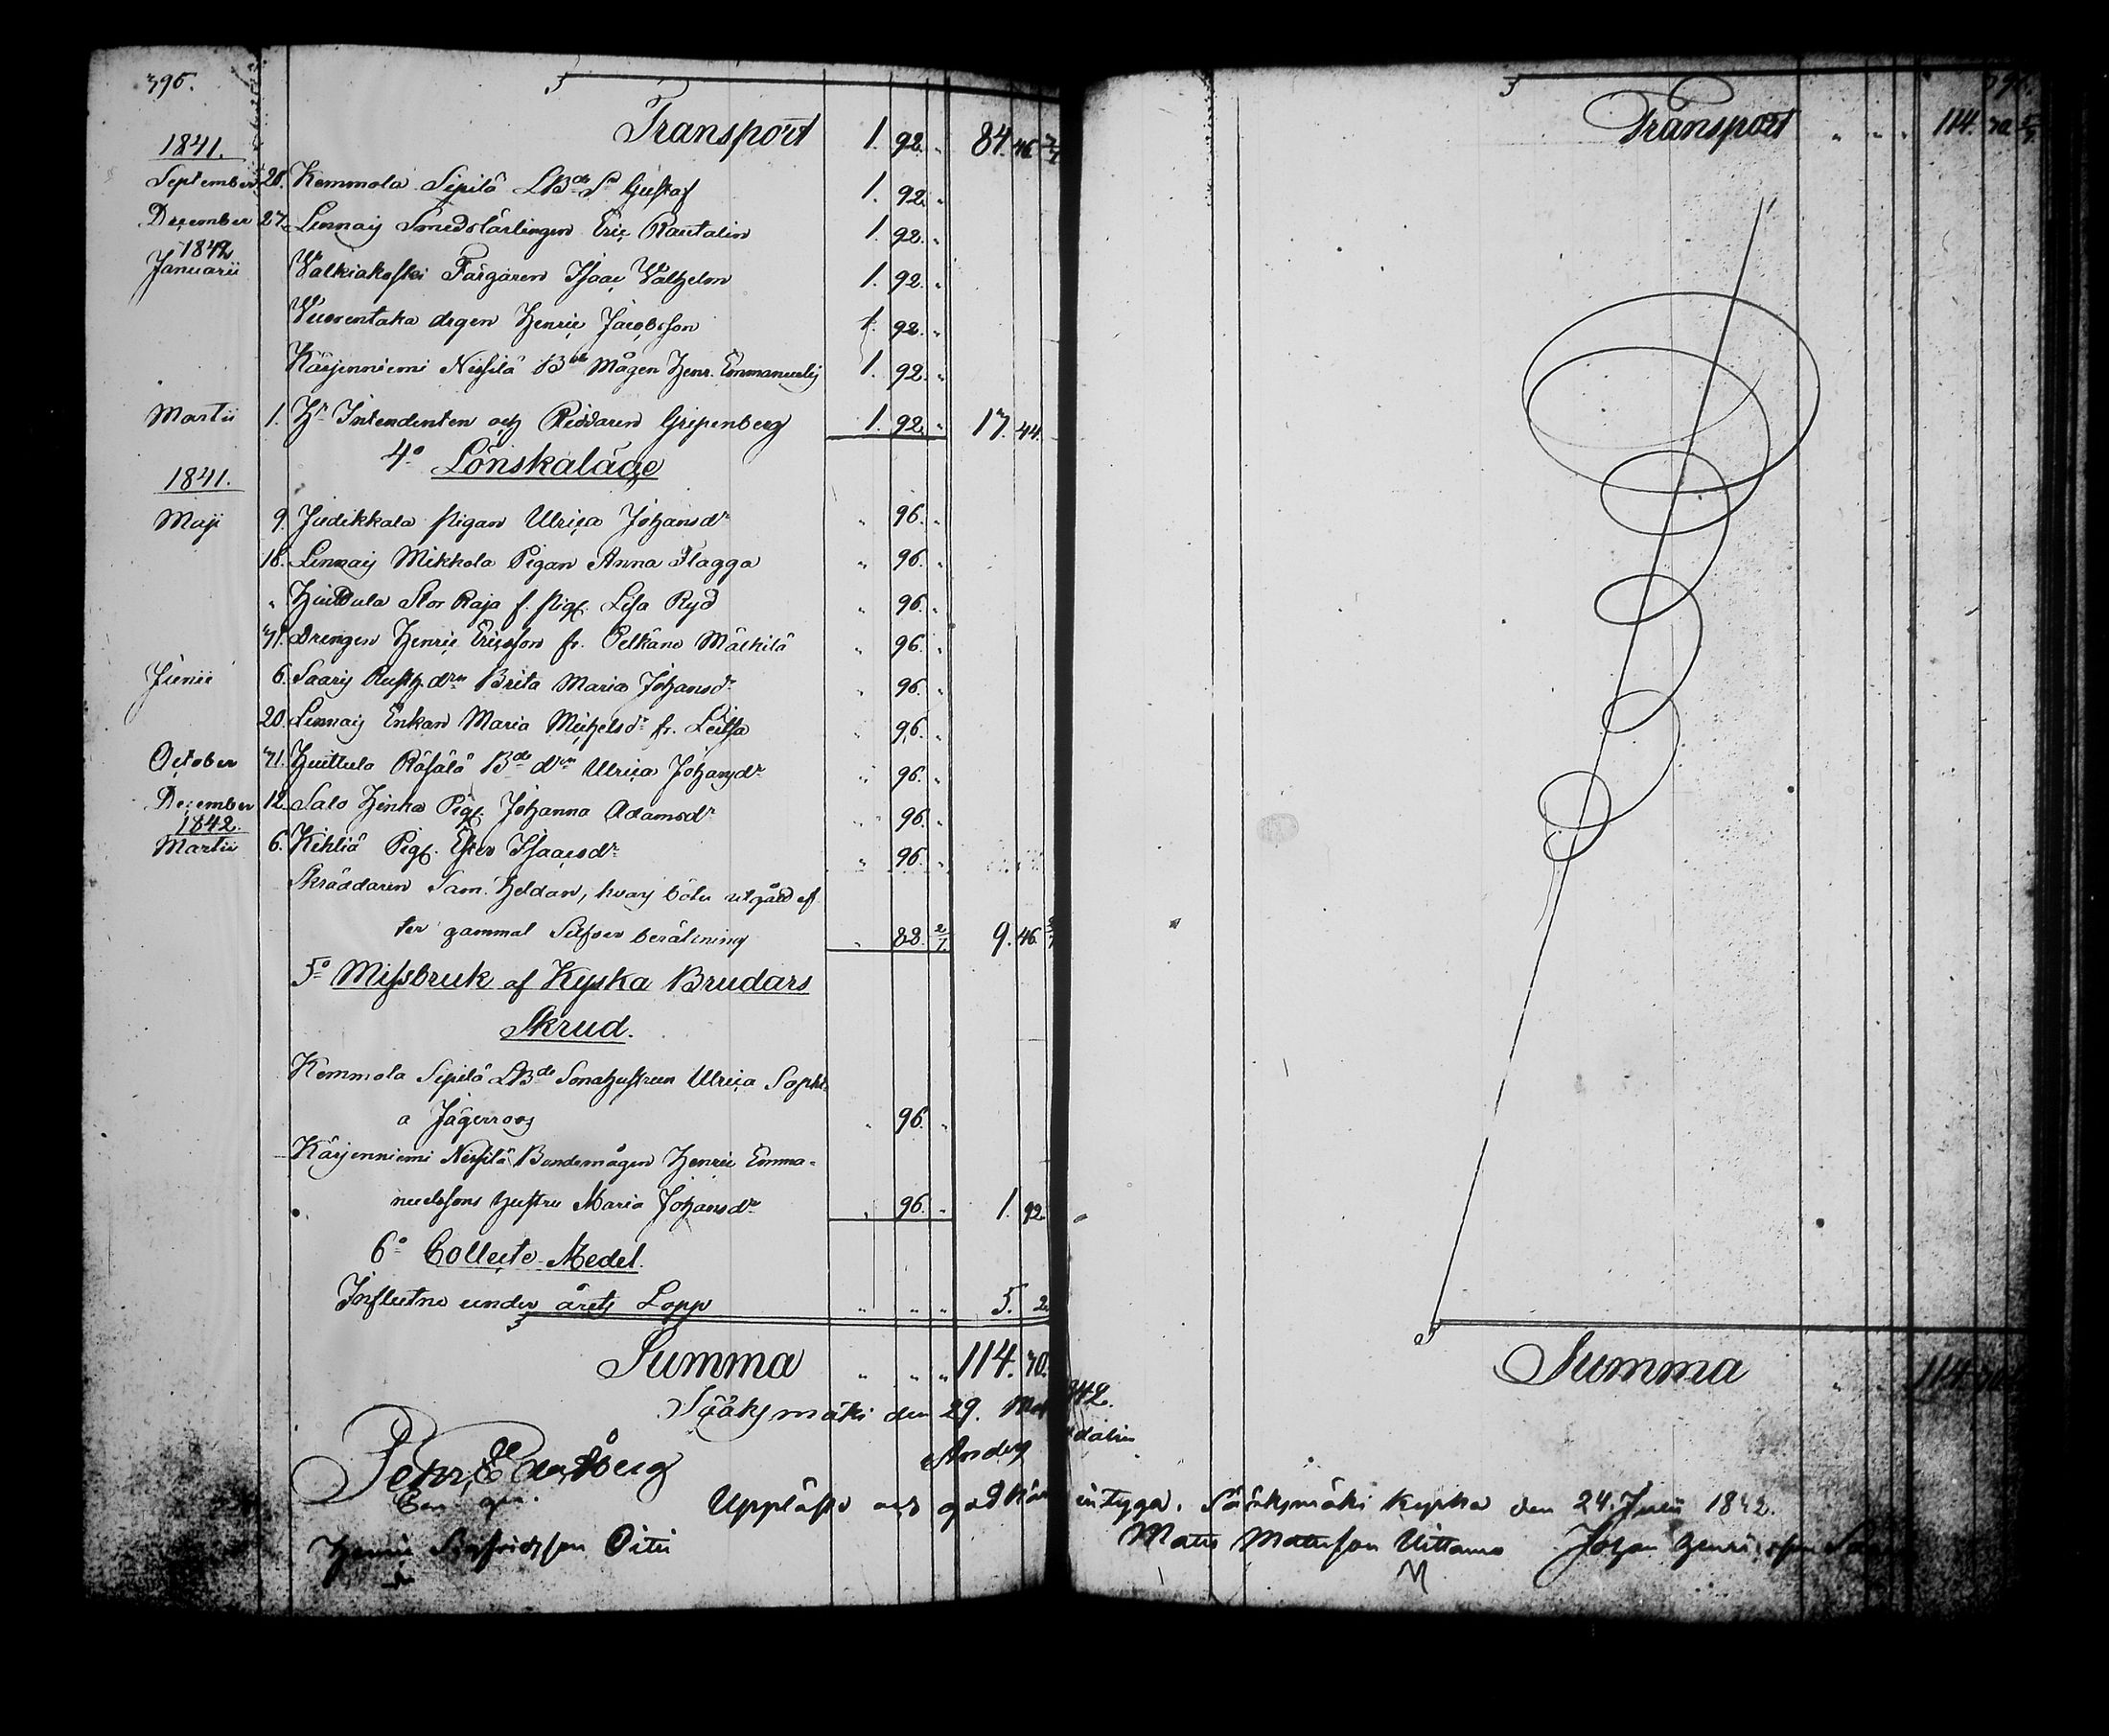 396.
Transport 1. 92. „ 84. 46 3/7
1841.
September 20. Kemmola Sipilä LBde Sn Gustaf 1. 92. „
December 27. Linnais Smedslärlingen Eric Rautalin 1. 92. „
1842
Januarii Walkiakoski Färgaren Isaac Walhelm 1. 92. „
Vuorentaka drgen Henric Jacobsson 1. 92. „
Kärjenniemi Nissilä Bde Mågen Henr. Emmanuels 1. 92. „
Martii 1. Hr Intendenten och Riddaren Gripenberg 1. 92. „ 17. 44.
4o Lönskaläge
1841.
Maji 9. Judikkala pigan Ulrica Johansdr „ 96. „
18. Linnais Mikkola Pigan Anna Flagga „ 96. „
„ Huittula Stor Raja f. pig. Lisa Ryd „ 96. „
31. Drengen Henric Ericsson fr. Pelkäne Mälkilä „ 96. „
Junii 6. Saaris Rusth. drn Brita Maria Johansdr „ 96. „
20. Linnais Enkan Maria Michelsdr fr. „ 96. „
October 31. Huittula Räsälä Bde drn Ulrica Johansdr „ 96. „
December 12. Salo Pig. Johanna Adamsdr „ 96. „
1842.
Martii 6. Kihliä Pig. Ester Isaacsdr „ 96. „
Skräddaren Sam. Heldan, hvars böter utgåd ef
ter gammal Silfver beräkning „ 88. 2/7. 9. 46.
5o Missbruk af Kyska Brudars
Skrud.
Kemmola Sipilä LBde Sonahustrun Ulrica Sophi
a Jägerroos „ 96. „
Kärjenniemi Nissilä Bondemågen Henric Emma-
nuelssons hustru Maria Johansdr „ 96. „ 1. 92.
6o Collecte-Medel.
Influtne under årets Lopp „ „ „ 5. 2
Summa „ „ „ 114. 30.
Sääksmäki den 29. 842.
Anders
Uppläst och godkän intyga. Sääksmäki kyrka den 24. Juli 1842.
Henric Oiti Matts Mattsson Uittamo Johan Henricsson
Transport „ „ „ 114. 30
Summa „ „ 114. 30